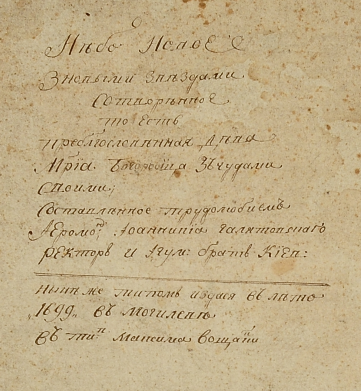 Небо Новое
Зновыми Звѣздами
Сотворенное
то есть
преблгословенная Дѣва
Мрїа Бгородица Зъчудами
Своими,
Составленное трудолюбиемъ
Їеромо Іоанникїа Галятовскаго
Ректора и Игум: братъ Кїев:
нынѣ же типомъ издася въ лѣто
1699, въ Могилевѣ
въ тип Маѯима Вощанки